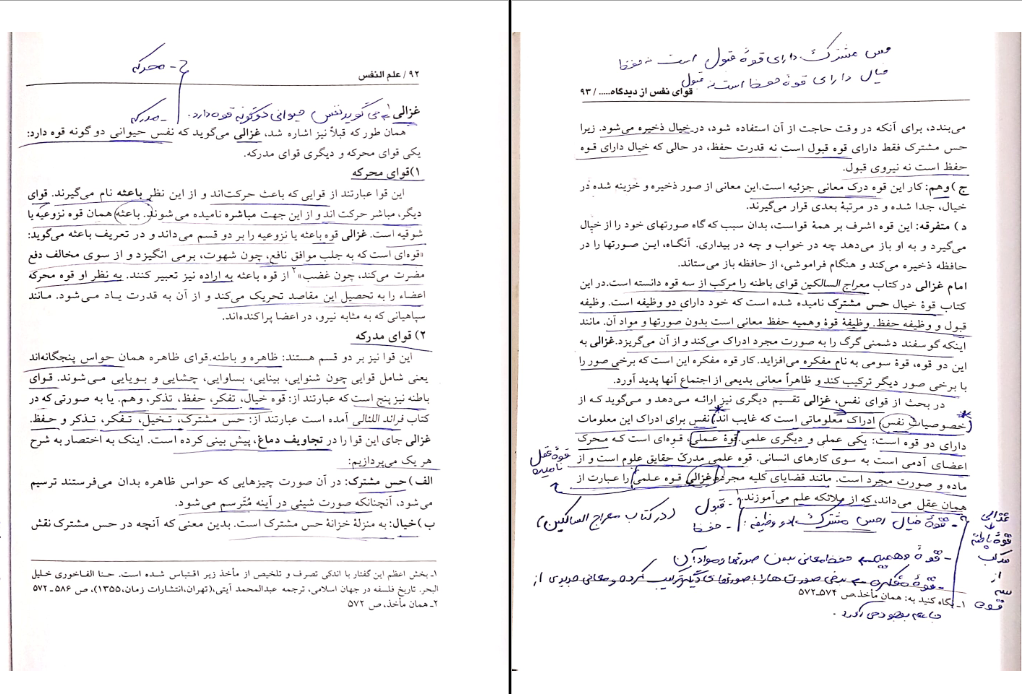 ۹۲ / علم النفس
محرکه
غزالی می گوید نفس حیوانی دو گونه قوه دارد. مدرکه
همان طور که قبلاً نیز اشاره شد، غزالی می‌گوید که نفس حیوانی دو گونه قوه دارد:
یکی قوای محرکه و دیگری قوای مدرکه.
۱)قوای محرکه
این قوا عبارتند از قوایی که باعث حرکت‌اند و از این نظر باعثه نام می‌گیرند. قوای
دیگر، مباشر حرکت اند و از این جهت مباشره نامیده می‌شوند. باعثه همان قوه نزوعیه یا
شوقیه است. غزالی قوه باعثه یا نزوعیه را بر دو قسم می‌داند و در تعریف باعثه می‌گوید:
«قوه‌ای است که به جلب موافق نافع، چون شهوت، برمی انگیزد و از سوی مخالف دفع
مضرت می‌کند، چون غضب»۲ از قوه باعثه به اراده نیز تعبیر کنند. به نظر او قوه محرکه
اعضاء را به تحصیل این مقاصد تحریک می‌کند و از آن به قدرت یاد می‌شود. مانند
سپاهیانی که به مثابه نیرو، در اعضا پراکنده‌اند.
۲) قوای مدرکه
این قوا نیز بر دو قسم هستند: ظاهره و باطنه.قوای ظاهره همان حواس پنجگانه‌اند
یعنی شامل قوایی چون شنوایی، بینایی، بساوایی، چشایی و بویایی می‌شوند. قوای
باطنه نیز پنج است که عبارتند از: قوه خیال، تفکر، حفظ، تذکر، وهم. یا به صورتی که در
کتاب فرائد اللئالی آمده است عبارتند از: حس مشترک، تخیل، تفکر، تذکر و حفظ.
غزالی جای این قوا را در تجاویف دماغ، پیش بینی کرده است. اینک به اختصار به شرح
هر یک می‌پردازیم:
الف) حس مشترک: در آن صورت چیزهایی که حواس ظاهره بدان می‌فرستند ترسیم
می‌شود، آنچنانکه صورت شیئی در آینه مُتَرسم می‌شود.
ب )خیال: به منزلهٔ خزانهٔ حس مشترک است. بدین معنی که آنچه در حس مشترک نقش
۱ـ بخش اعظم این گفتار با اندکی تصرف و تلخیص از مأخذ زیر اقتباس شده است. حنا الفاخوری خلیل
البحر. تاریخ فلسفه در جهان اسلامی، ترجمه عبدالمحمد آیتی،(تهران،انتشارات زمان،۱۳۵۵)، ص ۵۸۶ـ ۵۷۲
۲ـ همان مأخذ، ص ۵۷۲
حس مشترک دارای قوهٔ قبول است نه حفظ
خیال دارای قوهٔ حفظ است نه قبول
قوای نفس از دیدگاه..... / ۹۳
می‌بندد، برای آنکه در وقت حاجت از آن استفاده شود، در خیال ذخیره می‌شود. زیرا
حس مشترک فقط دارای قوه قبول است نه قدرت حفظ، در حالی که خیال دارای قوه
حفظ است نه نیروی قبول.
ج )وهم: کار این قوه درک معانی جزئیه است.این معانی از صور ذخیره و خزینه شده در
خیال، جدا شده و در مرتبهٔ بعدی قرار می‌گیرند.
د ) متفرقه: این قوه اشرف بر همهٔ قواست، بدان سبب که‌گاه صورتهای خود را از خیال
می‌گیرد و به او باز می‌دهد چه در خواب و چه در بیداری. آنگاه، این صورتها را در
حافظه ذخیره می‌کند و هنگام فراموشی، از حافظه باز می‌ستاند.
امام غزالی در کتاب معراج السالکین قوای باطنه را مرکب از سه قوه دانسته است.در این
کتاب قوهٔ خیال حس مشترک نامیده شده است که خود دارای دو وظیفه است. وظیفه
قبول و وظیفه حفظ. وظیفهٔ قوهٔ وهمیه حفظ معانی است بدون صورتها و مواد آن. مانند
اینکه گوسفند دشمنی گرگ را به صورت مجرد ادراک می‌کند و از آن می‌گریزد.غزالی به
این دو قوه، قوهٔ سومی به نام مفکره می‌افزاید. کار قوه مفکره این است که برخی صور را
با برخی صور دیگر ترکیب کند و ظاهراً معانی بدیعی از اجتماع آنها پدید آورد.
در بحث از قوای نفس، غزالی تقسیم دیگری نیز ارائه می‌دهد و می‌گوید که از
خصوصیات نفس ادراک معلوماتی است که غایب اند نفس برای ادراک این معلومات
دارای دو قوه است: یکی عملی و دیگری علمی. قوهٔ عملی، قوه‌ای است که محرک
اعضای آدمی است به سوی کارهای انسانی. قوه علمی مدرک حقایق علوم است و از
ماده و صورت مجرد است. مانند قضایای کلیه مجرد غزالی قوه علمی را عبارت از
همان عقل می‌داند، که از ملائکه علم می‌آموزند.
قوهٔ عقل نامیده
غزالی قوهٔ باطنه مرکب از سه قوه
- قوهٔ خیال (حس مشترک) دو وظیفه: - قبول - حفظ (در کتاب معراج السالکین)
- قوهٔ وهمیه حفظ معانی بدون صورتها و مواد آن
- قوهٔ مفکره برخی صورت ها را با صورتهای دیگر ترکیب کرده و معانی جدیدی از
۱ـ نگاه کنید به: همان مأخذ.ص ۵۷۴ـ۵۷۲